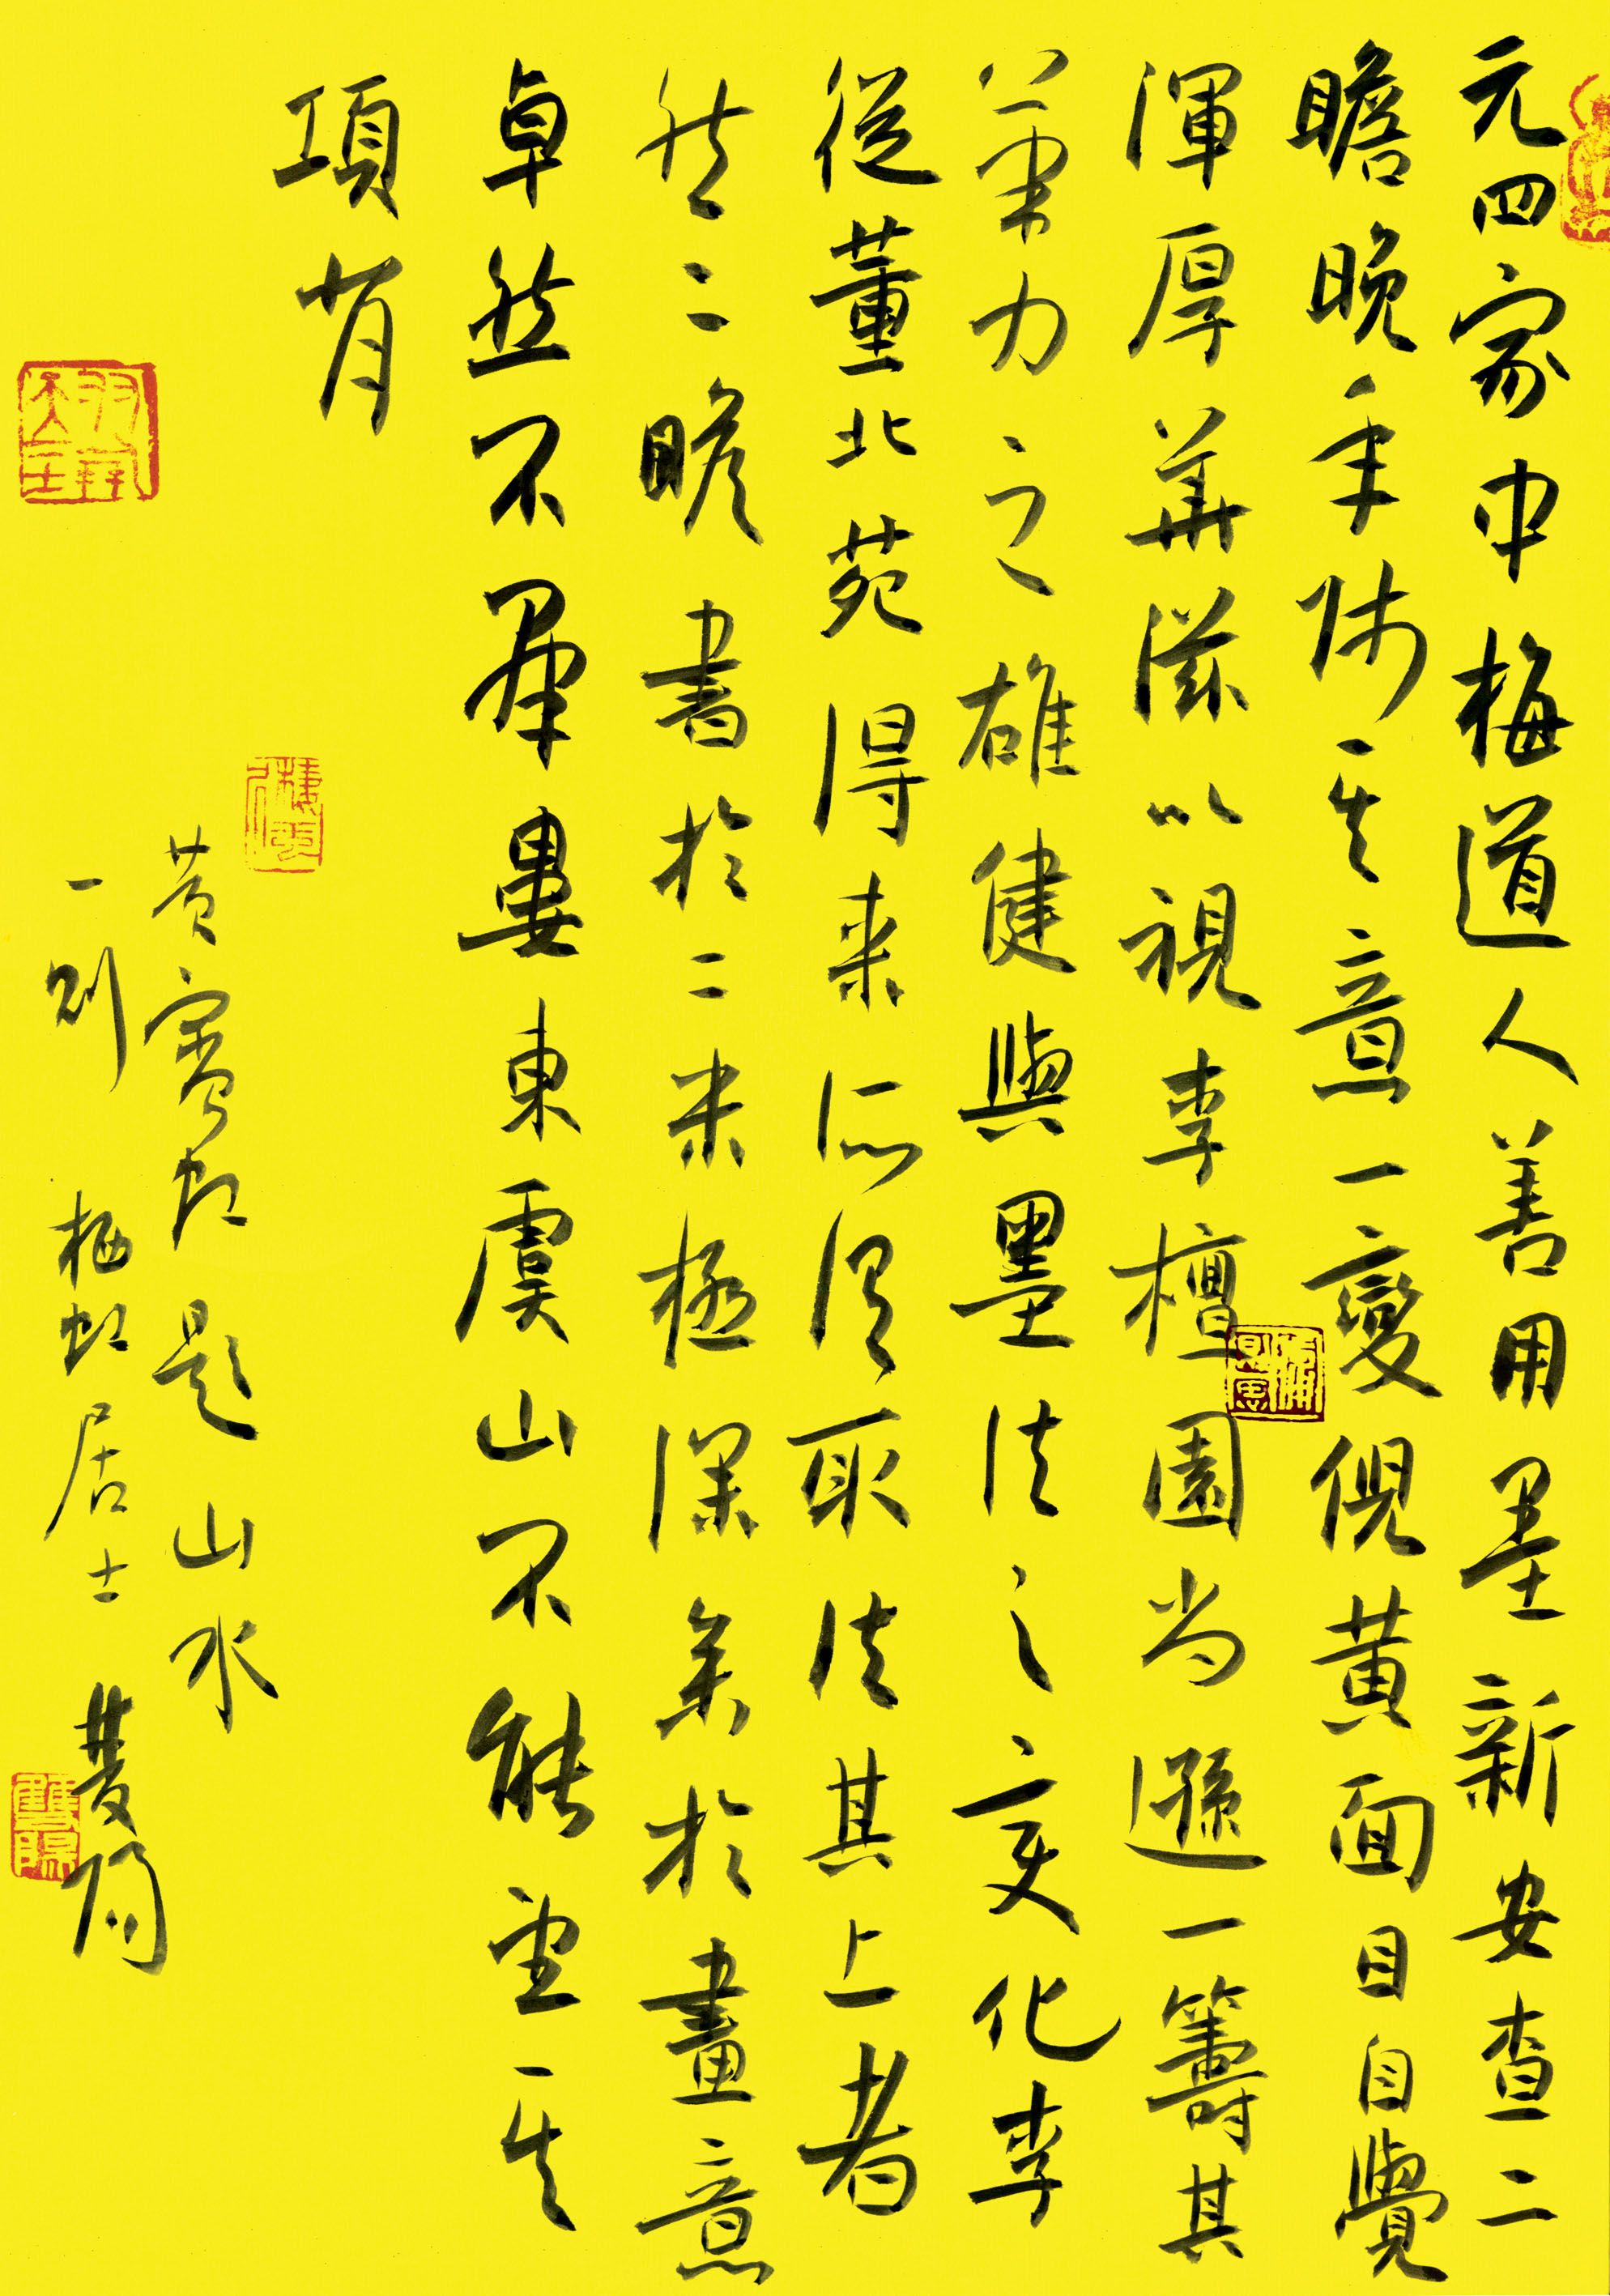 元四家中梅道人善用墨新安查二
瞻晚年師其意一變倪黃面目自覺
渾厚華滋以視李檀園尚遜一籌其
筆力之雄健與墨法之变化李
從董北苑得来所谓取法其上者
然二瞻書於二米極深矣於畫意
卓然不群婁東虞山不能望其
項背
黄賓虹題山水
一則 栖虹居士